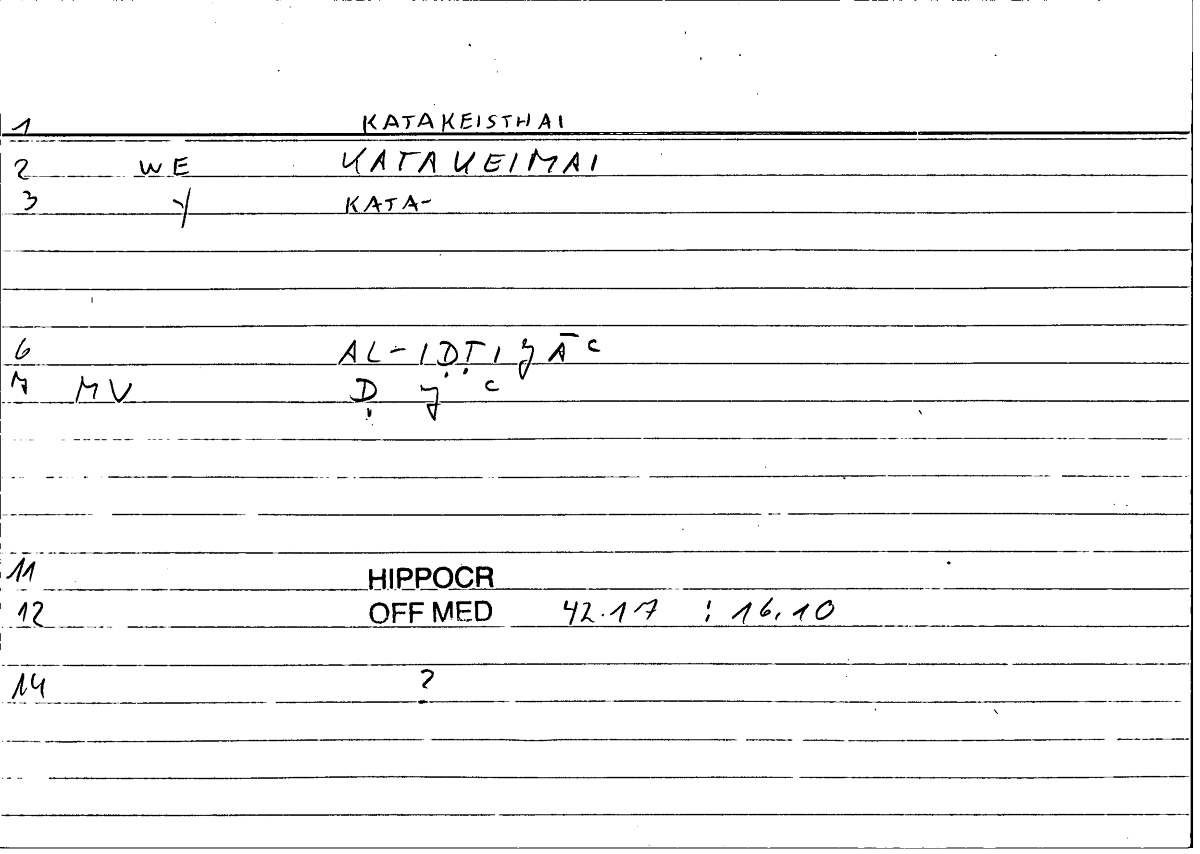 1 KATAKEISTHAI
2 WE KATAKEIMAI
3 Y KATA-
6 AL-IḌṬIǦĀʿ
7 MV Ḍ Ǧ ʿ
11 HIPPOCR
12 OFF MED 42.17 : 16.10
14 ?